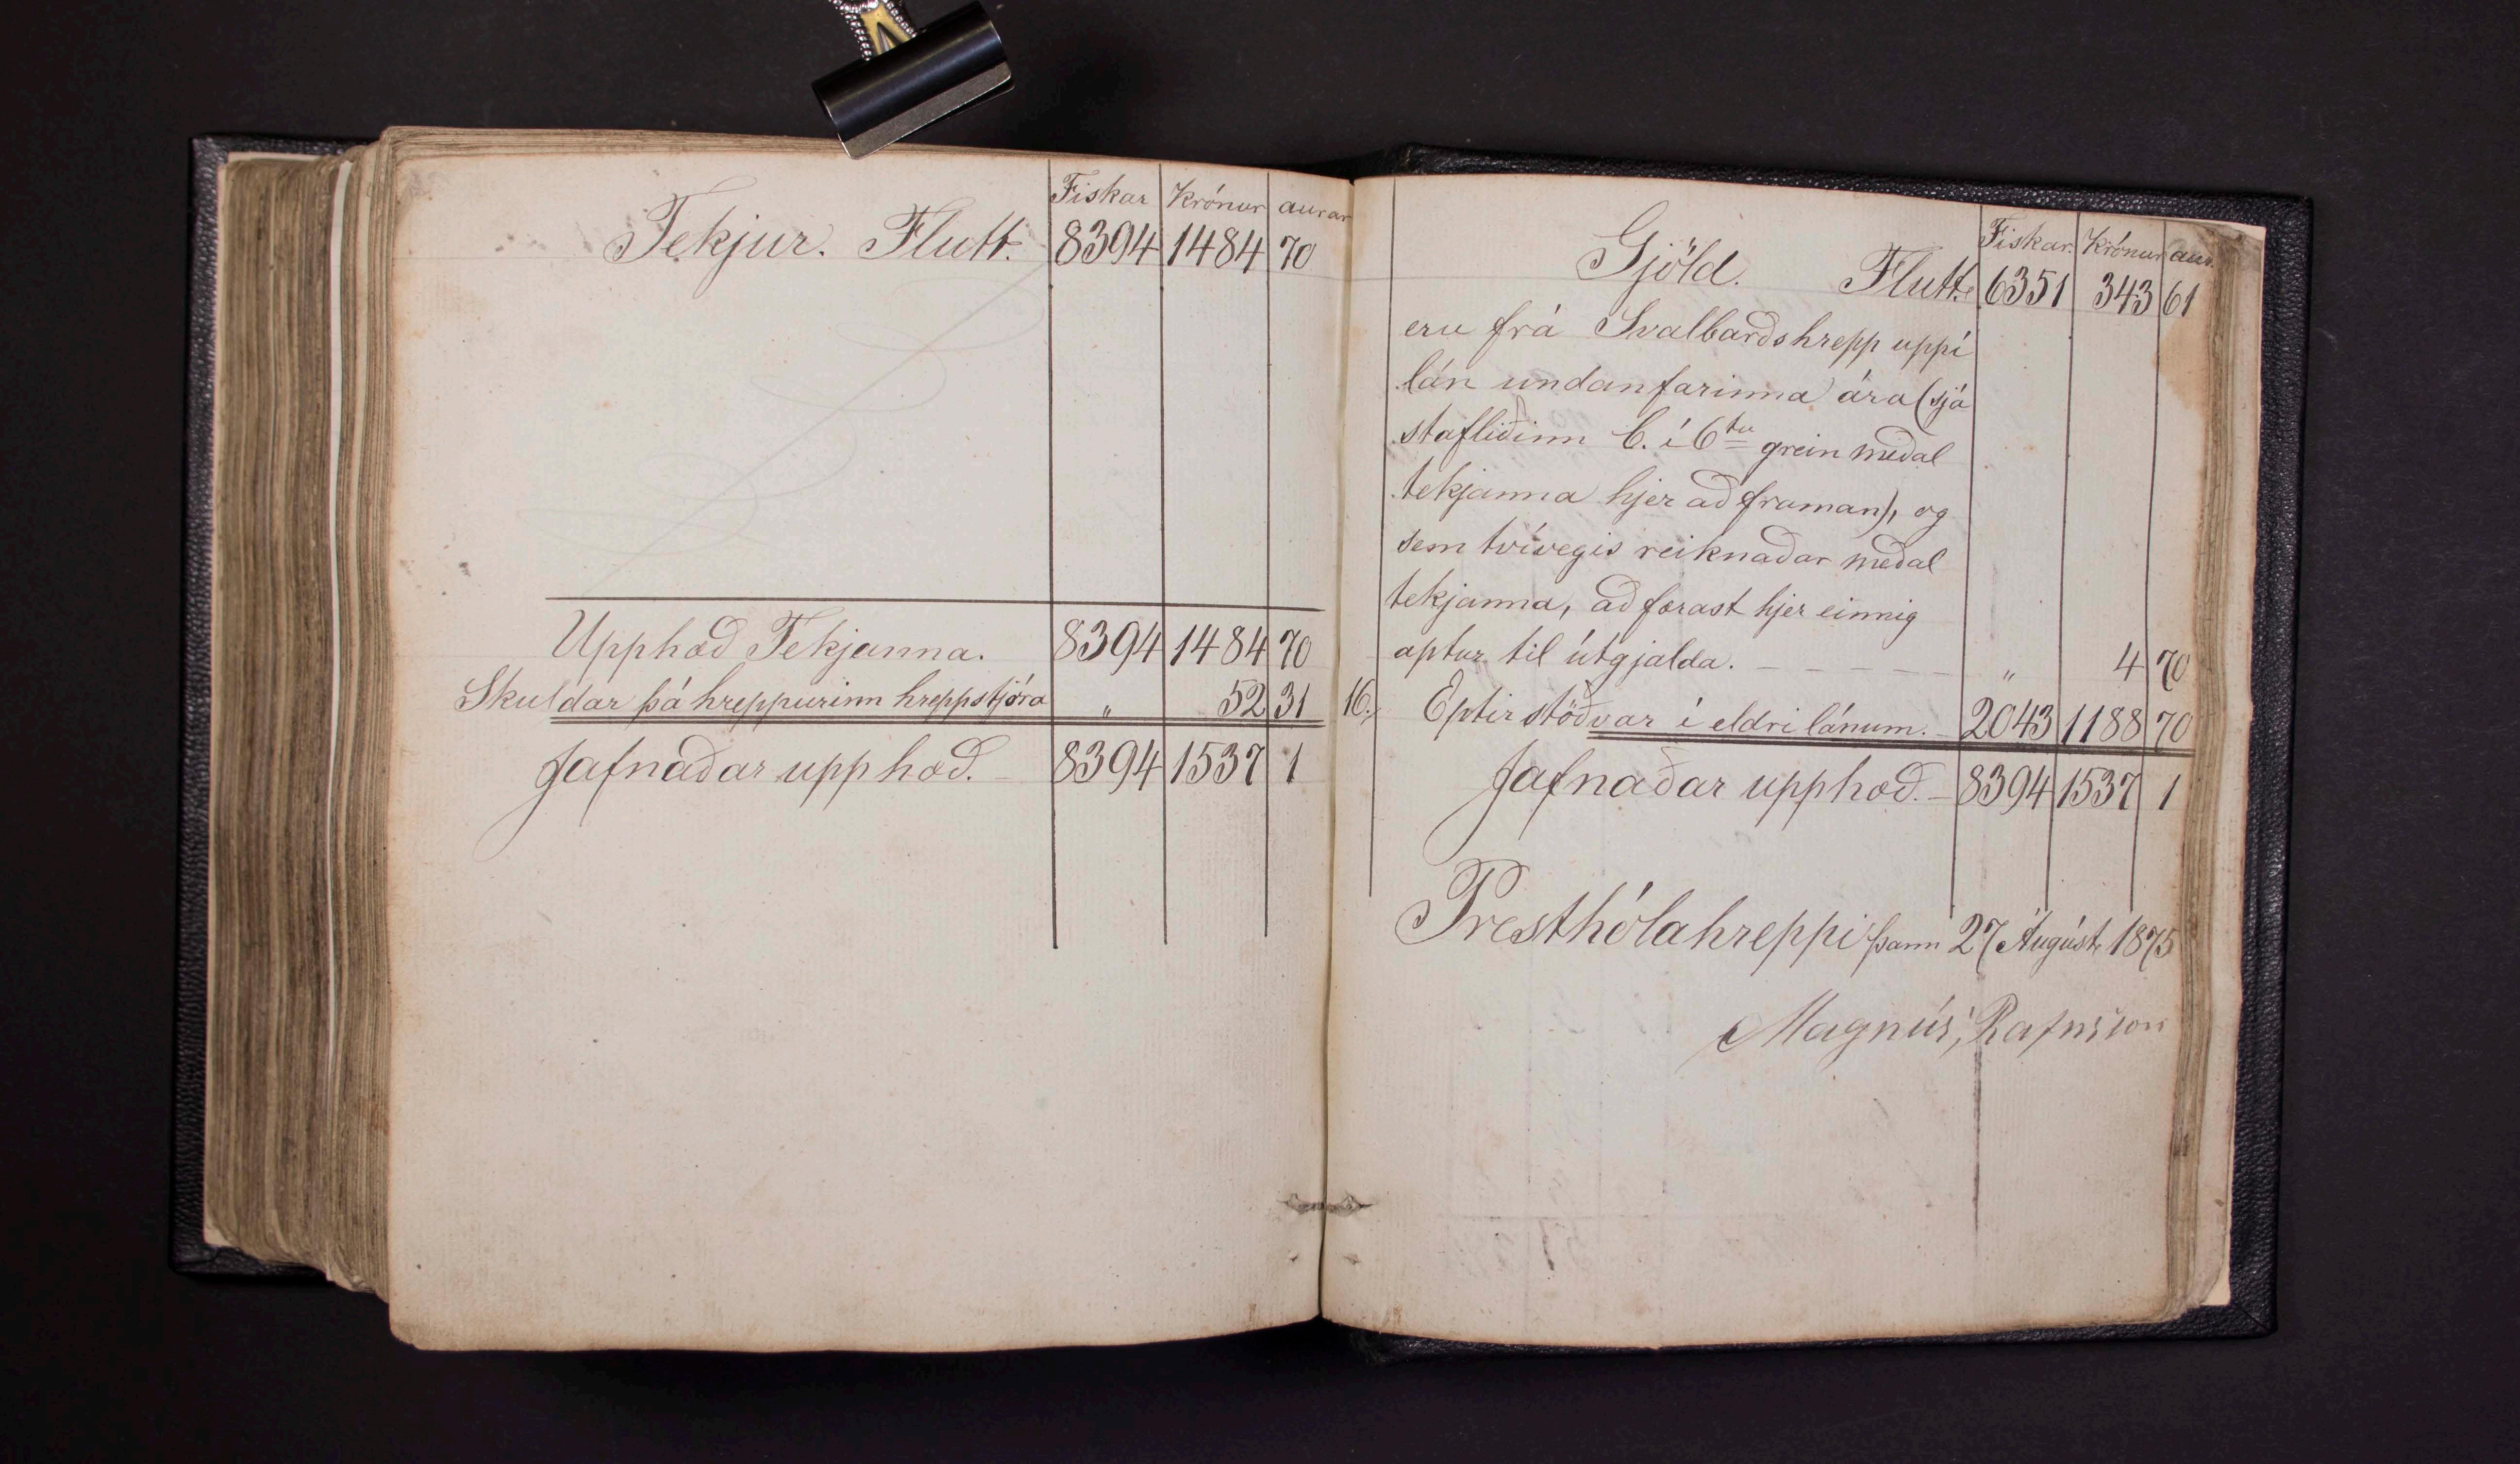 Fiskar Krónur aurar
Tekjur. Flutt. 8394 1484 70
Upphæð Tekjanna. 8394 1484 70
Skuldar þá hreppurinn hreppstjóra „ 52 31
Jafnaðar upphæð. 8394 1537 1
Fiskar. Krónur aur.
Gjöld. Flutt. 6351 343 61
eru frá Svalbarðshrepp uppí
lán undanfarinna ára (sjá
stafliðinn C. í 6tu grein meðal
tekjanna hjer að framan), og
sem tvívegis reiknaðar meðal
tekjanna, að færast hjer einnig
aptur til útgjalda. — — — — „ 4 70
16. Eptirstöðvar í eldri lánum. 2043 1188 70
Jafnaðar upphæð. 8394 1537 1
Presthólahreppi þann 27 Ágúst 1875
Magnús, Rafnsson